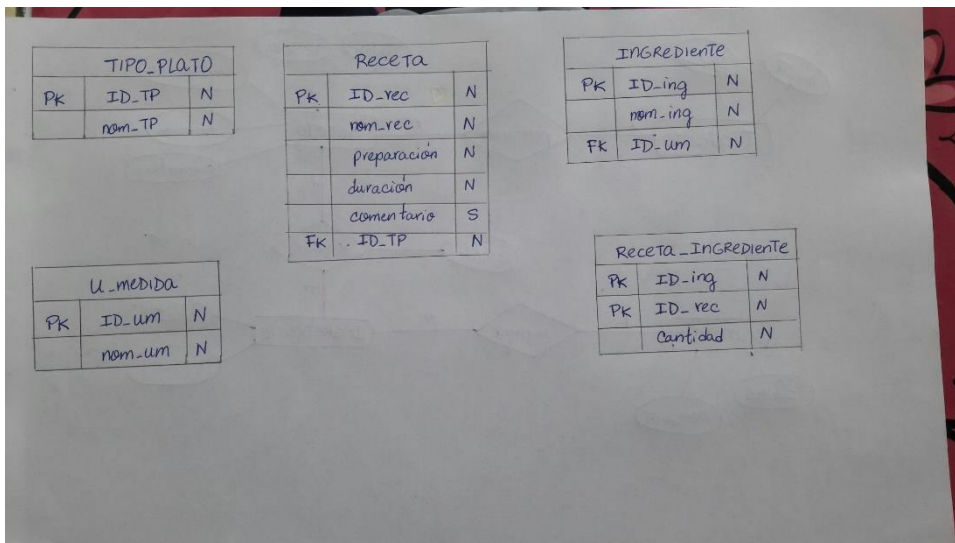 TIPO_PLATO
PK ID_TP N
nom_TP N
Receta
PK ID_rec N
nom_rec N
preparación N
duración N
comentario S
FK ID_TP N
INGREDIENTE
PK ID_ing N
nom_ing N
FK ID_um N
U_MEDIDA
PK ID_um N
nom_um N
Receta_INGREDIENTE
PK ID_ing N
PK ID_rec N
Cantidad N